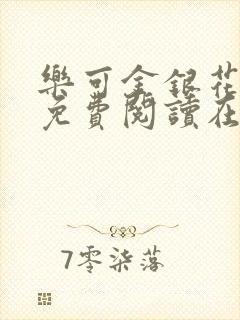 樂可金銀花
免費閱讀在
7零柒落